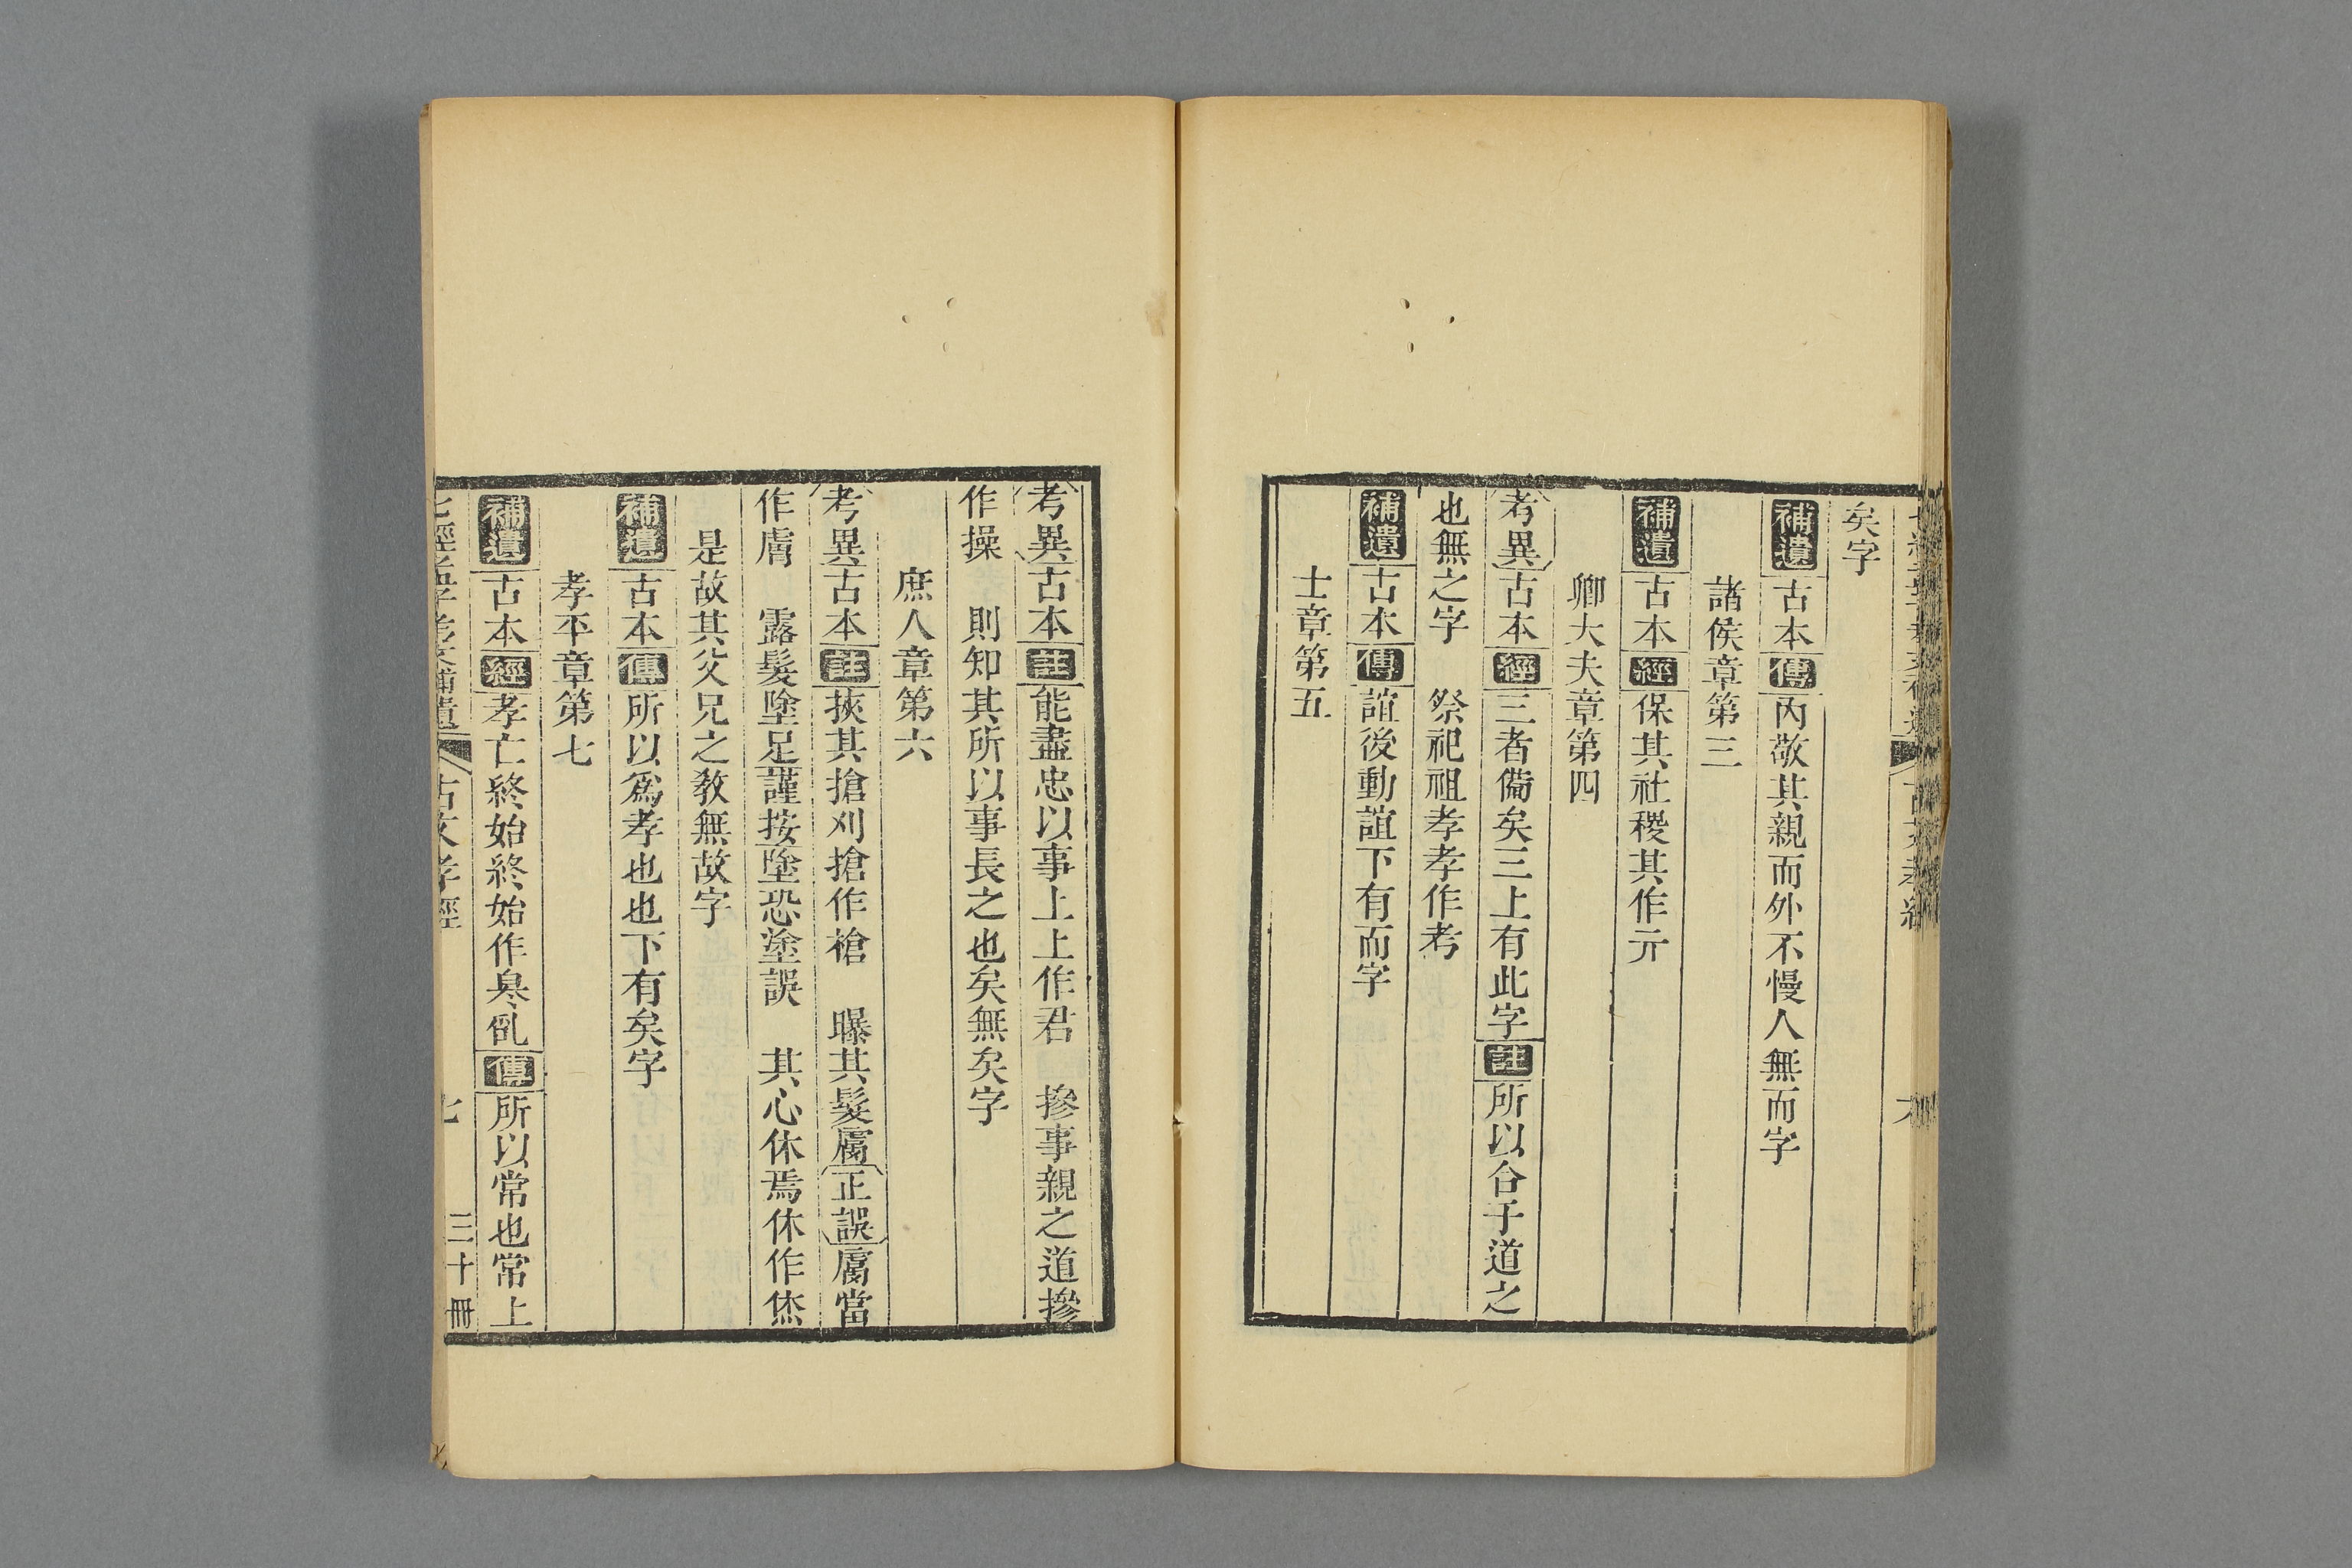 矣字
補遺古本傳內敬其親而外不慢人無而字
諸侯章第三
補遺古本經保其社稷其作亓
卿大夫章第四
考異古本經三者備矣三上有此字註所以合于道之
也無之字　祭祀祖孝孝作考
補遺古本傳誼後動誼下有而字
士章第五
考異古本註能盡忠以事上上作君　摻事親之道摻
作操　則知其所以事長之也矣無矣字
庶人章第六
考異古本註挾其搶刈搶作槍　曝其髮膚正誤膚當
作膚　露髮墬足謹按墬恐塗誤　其心休焉休作烋
是故其父兄之敎無故字
補遺古本傳所以爲孝也也下有矣字
孝平章第七
補遺古本經孝亡終始終始作傳所以常也常上
七經孟子考文補遺　古文孝經　七　三十冊